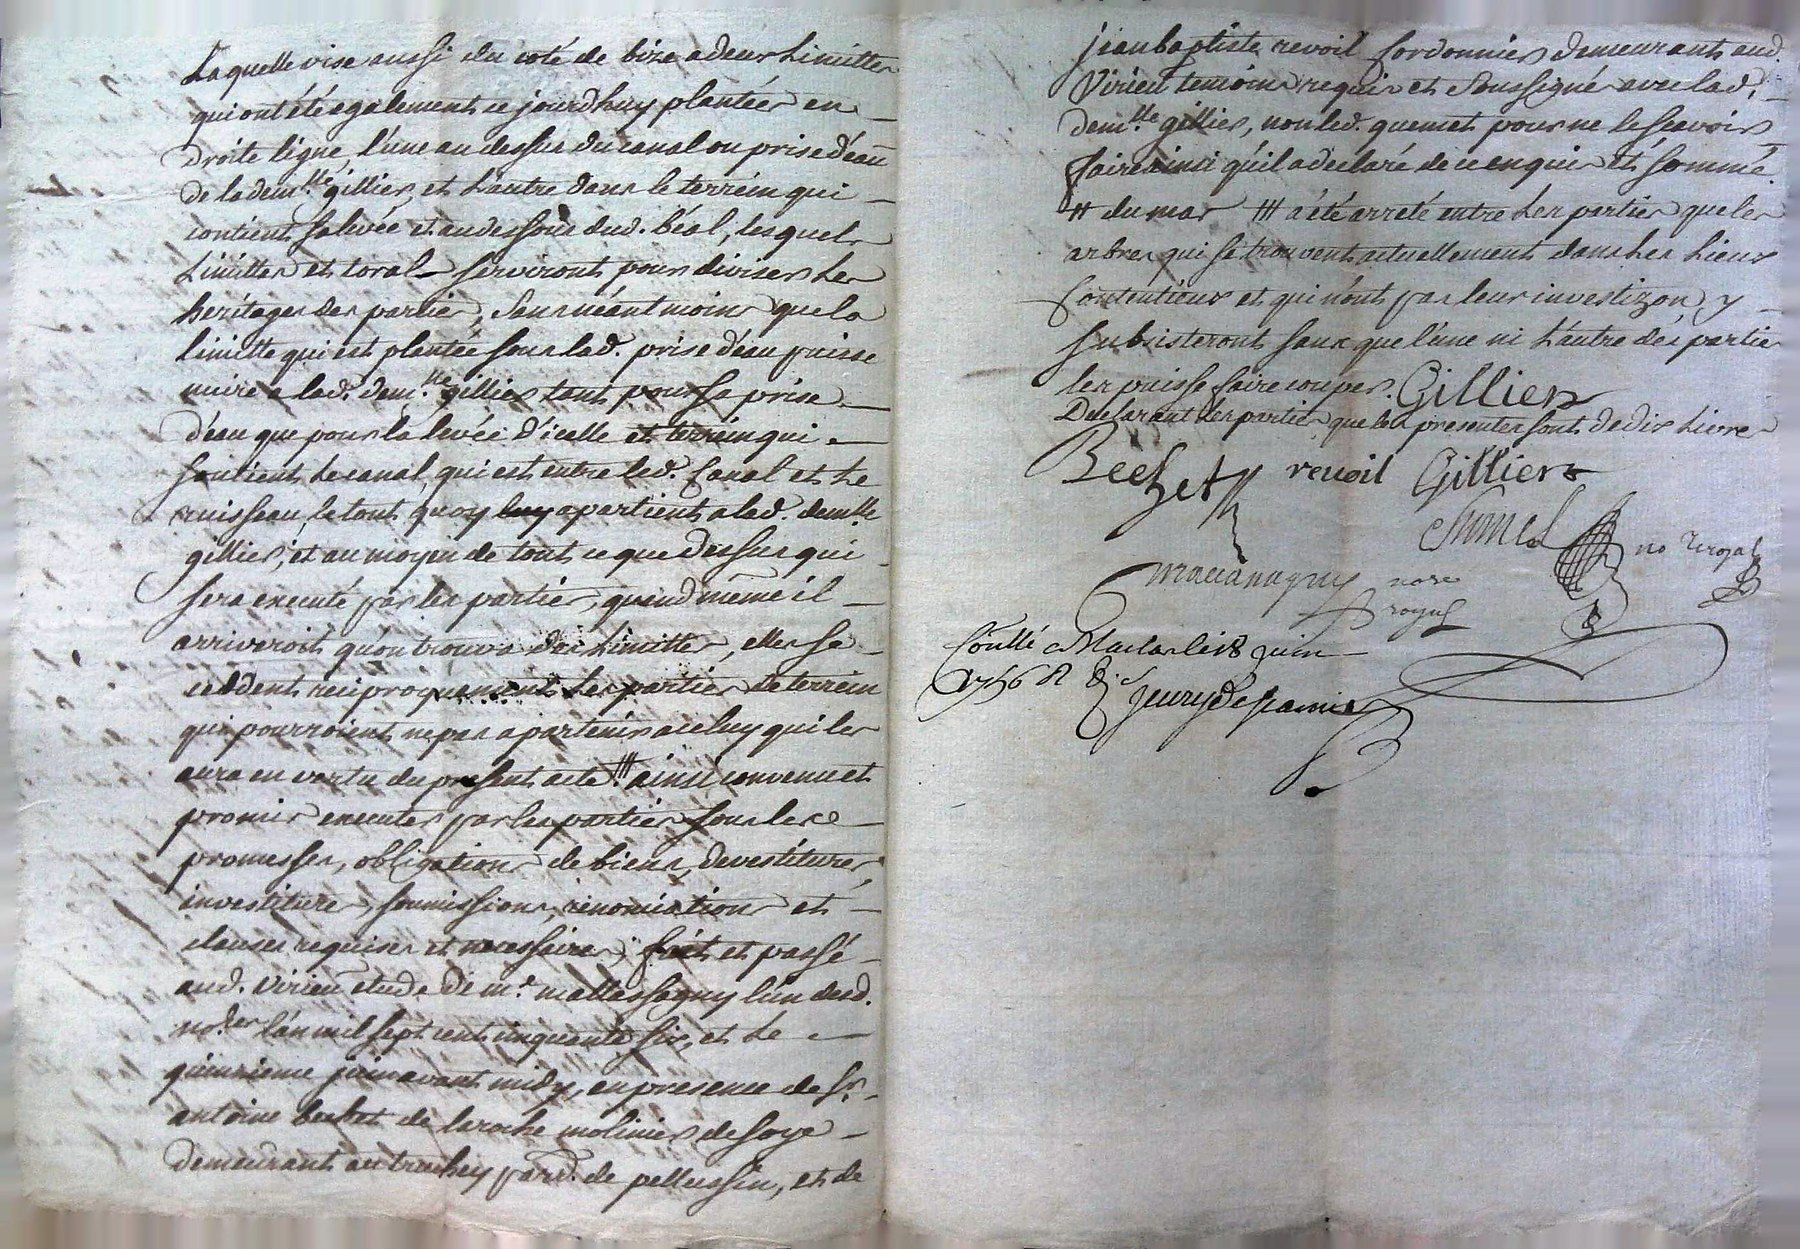 Laquelle vise aussi du coté de bize a deux Limittes
qui ont été egalement ce jourdhuy plantées en
droite ligne, l'une au dessus du canal ou prise d'eau
de la dem.lle gillier, et Lautre dans le terrein qui
contient sa levée et au dessous dud. béal, lesquels
Limittes et toral serviront pour diviser Les
heritages des parties, sans néantmoins que la
limitte qui est plantée sous lad. prise d'eau puisse
nuire a lad. dem.lle gillier tant pour sa prise
d'eau que pour la levée d'icelle et terrein qui
soutient Le canal, qui est entre led. Canal et Le
ruisseau, le tout quoy apartient a lad. dem.lle
gillier, et au moyen de tout ce que dessus qui
sera executé par les parties, quand même il
arriveroit qu'on trouva des Limittes, elles se
ceddent reciproquement Les parties Le terrein
qui pourroient ne pas apartenir a celuy qui les
aura en vertu du present acte ttt ainsi convenu et
promis executer par les parties sous leurs
promesses, obligations de biens, devestitures,
investitures, soumissions, renonciations et
clauses requises et necessaires, fait et passé
aud. Virieu etude de m.e mallassagny l'un desd.
no.res l'an mil sept cent cinquante six, et Le
quinzieme juin avant midy, en presence de sr.
antoine bechet de laroche molinier de soye
demeurant au truchey parr. de pellussin, et de
jean baptiste revoil Cordonnier demeurants aud.
Virieu temoins requis et soussignés avec lad.
dem.lle gillier, non led. quemet pour ne le scavoir
faire ainsi qu'il a declaré de ce enquis et sommé.
tt du mas ttt a été arreté entre Les parties que les
arbres qui se trouvent actuellement dans Les Lieux
Contentieux et qui n'ont pas leur investizon, y
subsisteront sans que l'une ni L'autre des parties
les puisse faire couper. Gillier
Declarant Les parties que les presentes sont de dix Livres
Bechet revoil Gillier
no Royal
nore
royal
Conllé a Maclas le 18 juin
1756